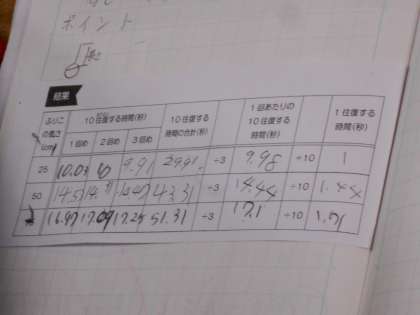 ポイント
結果
ふりこの長さ(cm) 10往復する時間(秒) 10往復する時間の合計(秒) 1回あたりの10往復する時間(秒) 1往復する時間(秒)
1回め 2回め 3回め
25 10.03 10 9.91 29.91 ÷3 9.98 ÷10 1
50 43.31 ÷3 14.44 ÷10 1.44
16.97 17.09 17.25 51.31 ÷3 17.1 ÷10 1.71